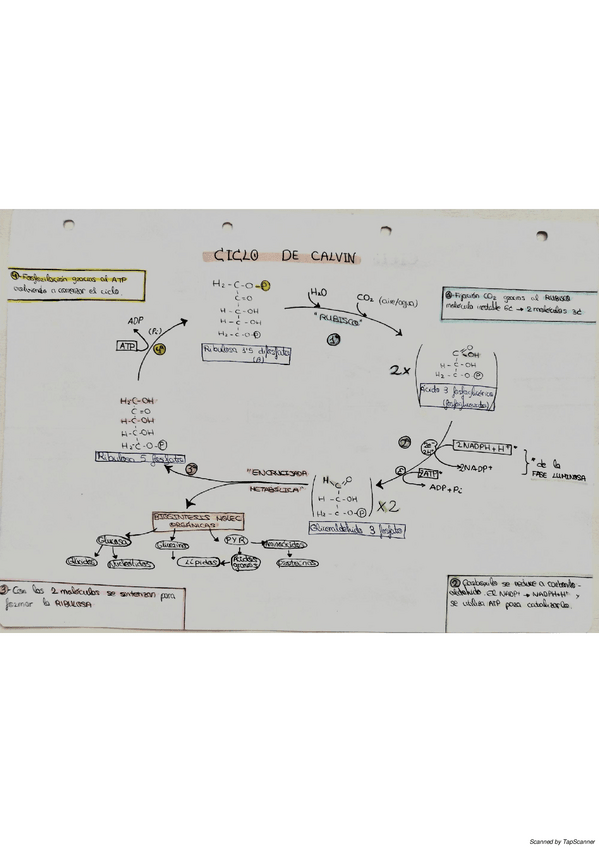 CICLO DE CALVIN
④-Fosforilación gracias al ATP
volviendo a comenzar el ciclo.
H₂-C-O-P
C=O
H-C-OH
H-C-OH
H₂-C-O-P
Ribulosa 1'5 difosfato
(A)
H₂O
CO₂ (aire/agua)
"RUBISCO"
1º
①-Fijación CO₂ gracias al RUBISCO
molécula inestable 6C → 2 moléculas 3C
ADP
(Pi)
ATP
4º
2x
C OH
H-C-OH
H₂-C-O-P
Ácido 3 fosfoglicérico
(fosfoglicerato)
H₂C-OH
C=O
H-C-OH
H-C-OH
H₂C-O-P
Ribulosa 5 fosfato
2º
2NADPH+H⁺*
2NADP⁺
2ATP*
ADP+Pi
* de la
FASE LUMINOSA
3º
"ENCRUCIJADA
METABÓLICA"
H C O
H-C-OH
H₂-C-O-P
x2
Gliceraldehído 3 fosfato
BIOSÍNTESIS MOLEC
ORGÁNICAS
Glucosa
Glicerina
PYR
Aminoácidos
Glúcidos
Nucleótidos
Lípidos
Ácidos
grasos
Proteínas
③-Con las 2 moléculas se sintetizan para
formar la RIBULOSA
② se reduce a
aldehído el NADP⁺ → NADPH+H⁺ y
se utiliza ATP para catalizarlo.
Scanned by TapScanner